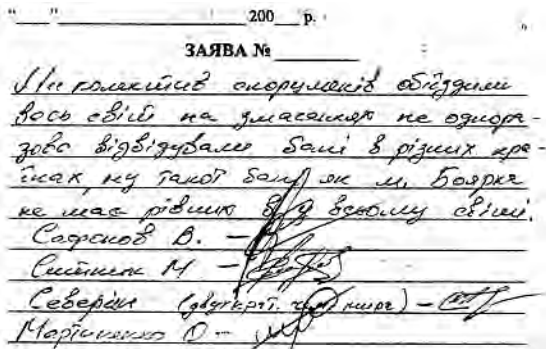 "___" ___________ 200__ р.
ЗАЯВА № ________
Ми колектив спорцменів обїздили
весь світ на змаганнях не однора-
зово відвідували бані в різних кра-
їнах, ну такої бані як м. Боярка
не має рівних в у всьому світі.
Сафонов В. –
Ситник М –
Северін (двукрат. чемп мира) –
Мартиненко О –